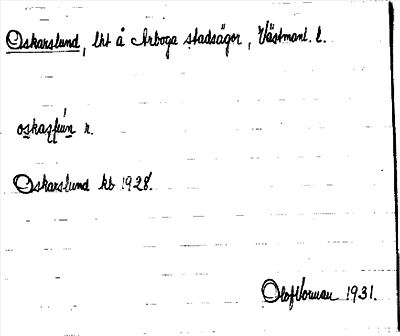 Oskarslund, lht å Arboga stadsägor, Västmanl. l.
r.
Oskarslund kb 1928.
Olof Vorman 1931.